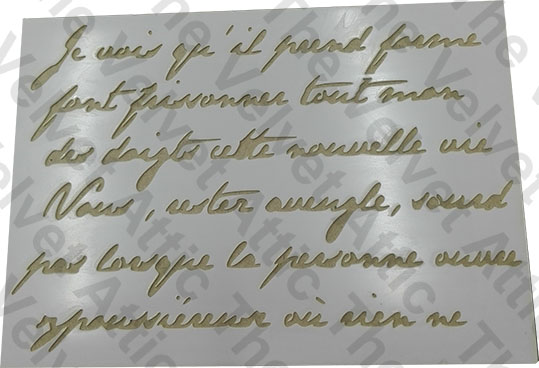 Je vais qu'il prend forme
font frissonner tout mon
des doigts cette nouvelle vie
Vous, rester aveugle, sourd
pas lorsque la personne ouvre
poussiéreux où rien ne
The Velvet Attic